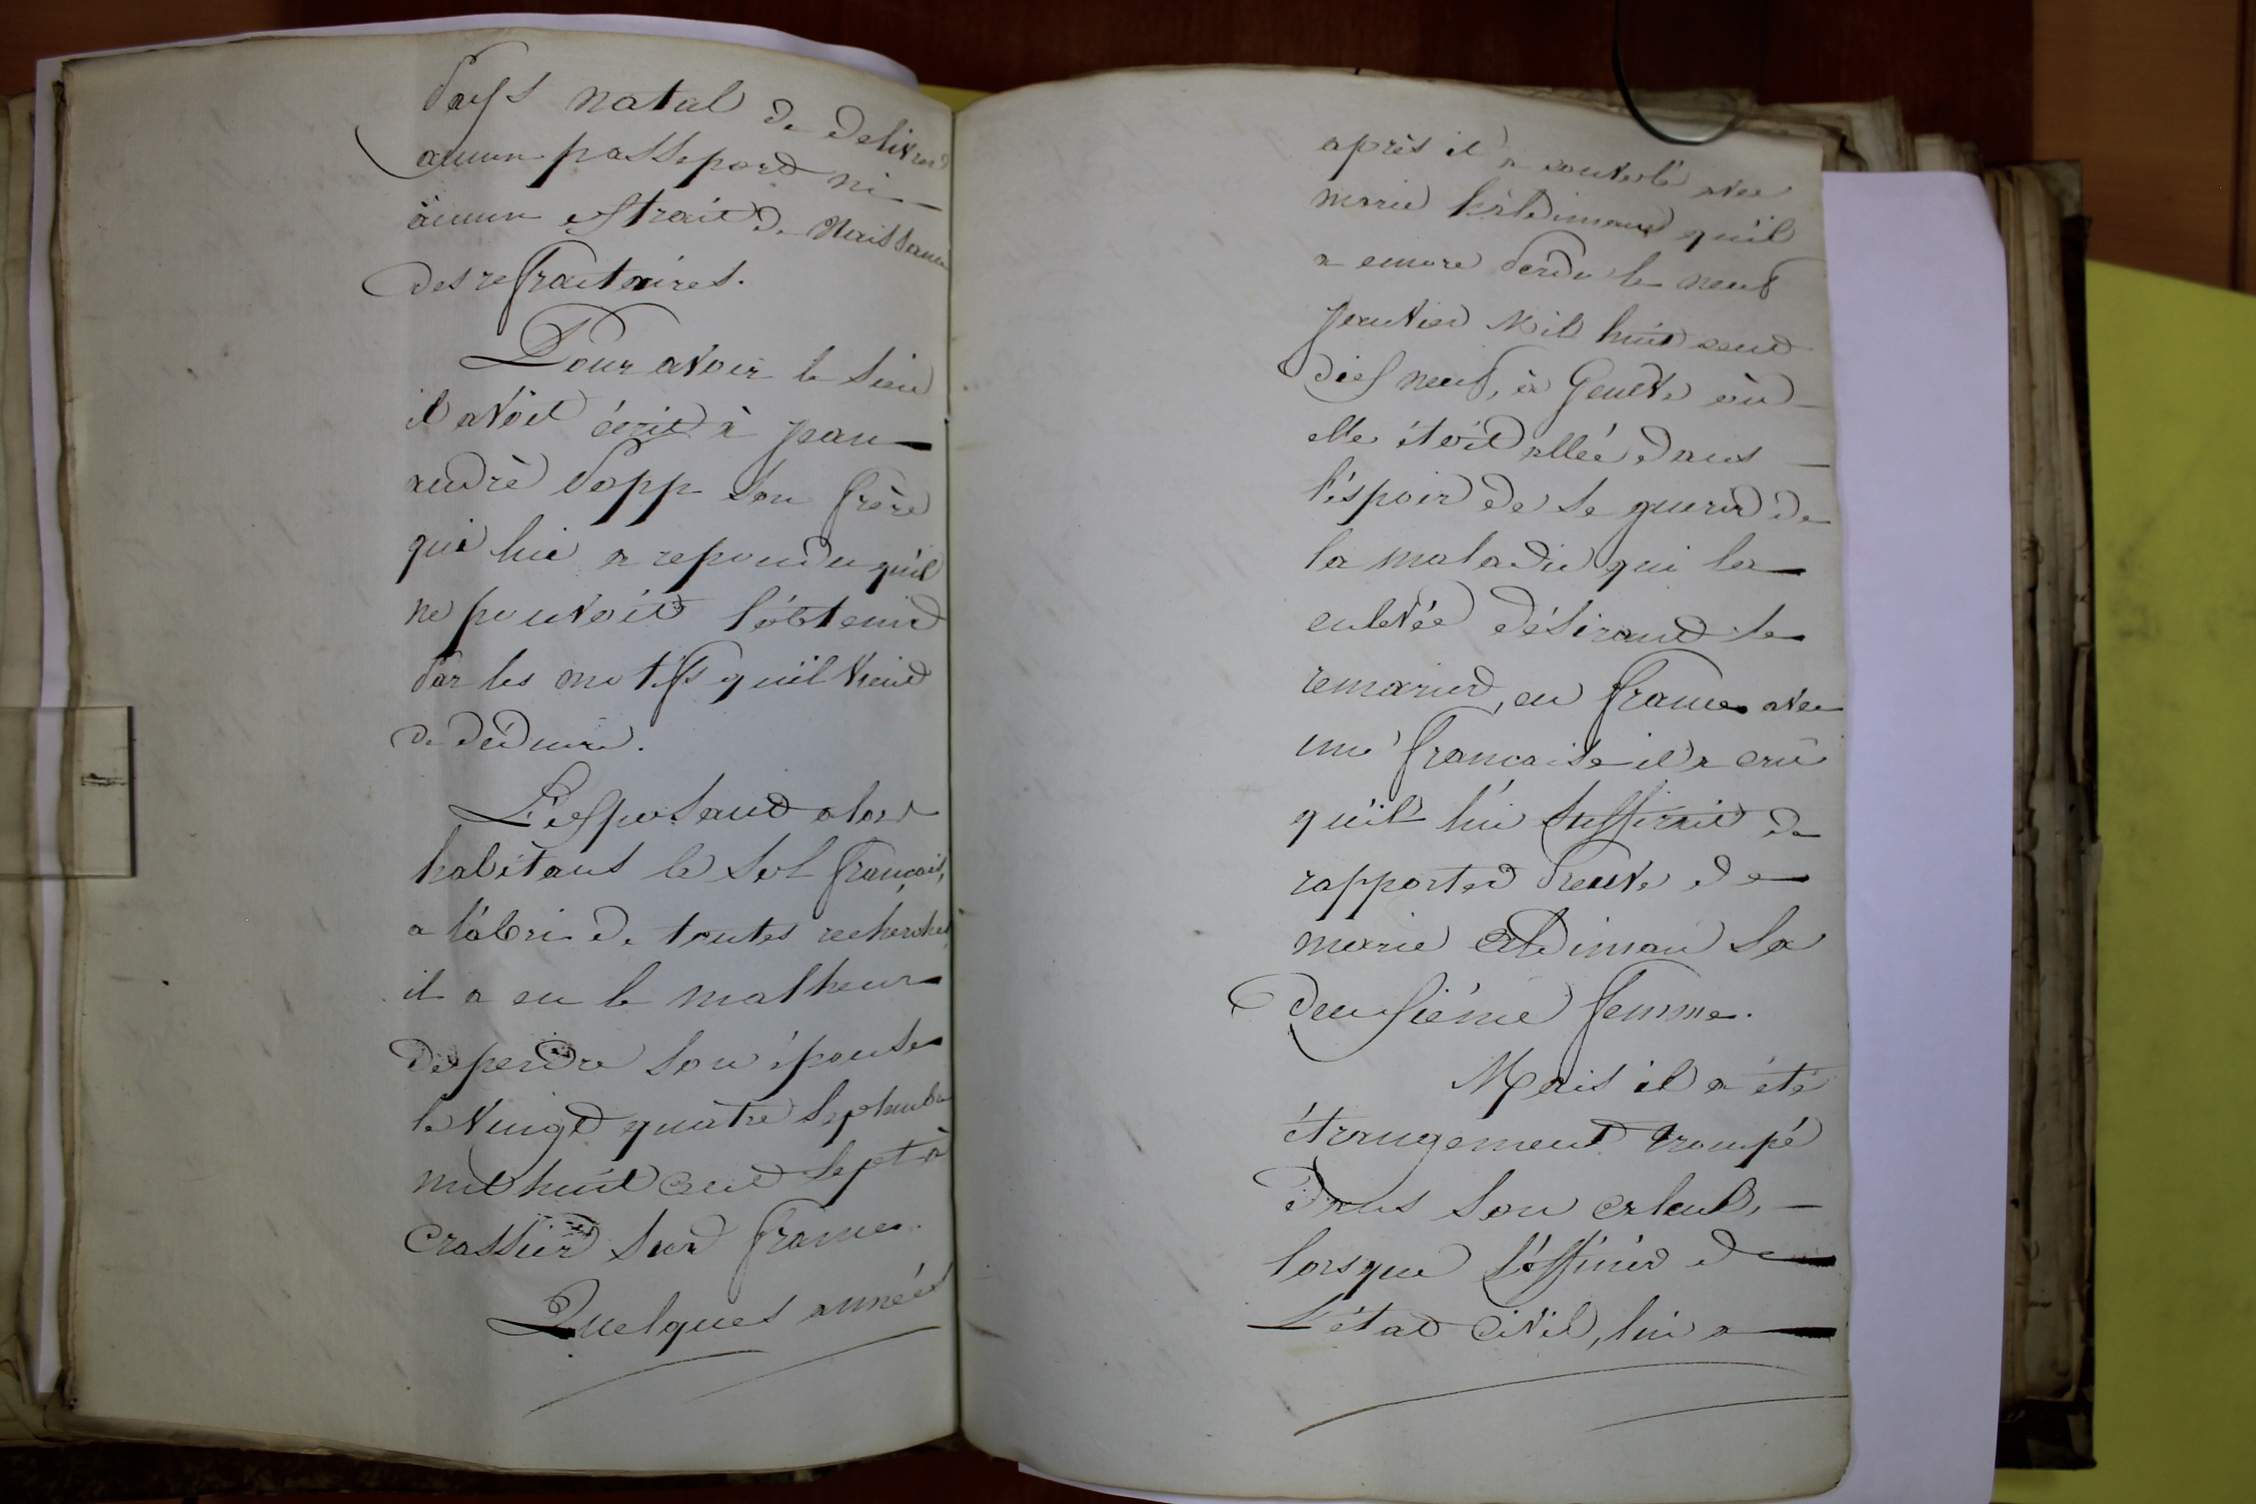 Pays natal de délivrer
aucun passeport ni
aucun extrait de Naissance
des refractaires.
Pour avoir le sien
il avoit écrit à jean
andrè Popp son frère
qui lui a repondu qu'il
ne pouvoit l'obtenir
Par les motifs qu'il vient
de déduire.
L'exposant alors
habitans le sol français,
a l'abri de toutes recherches
il a eu le malheur
de perdre son épouse
le vingt quatre septembre
mil huit cent sept à
Crassier sur france.
Quelques années
après il a convolé avec
marie haldimand qu'il
a encore Perdu le neuf
janvier Mil huit cent
dix neuf, à Genève où
elle étoit allée dans
l'éspoir de se guerir de
la maladie qui la
enlevée désirant se
remarier, en france avec
une française il a crû
qu'il lui suffirait de
rapporter Preuve de
marie aldimau sa
deuxième femme.
Mais il a été
étrangement trompé
dans son calcul,
lorsque l'officier de
L'état Civil, lui a